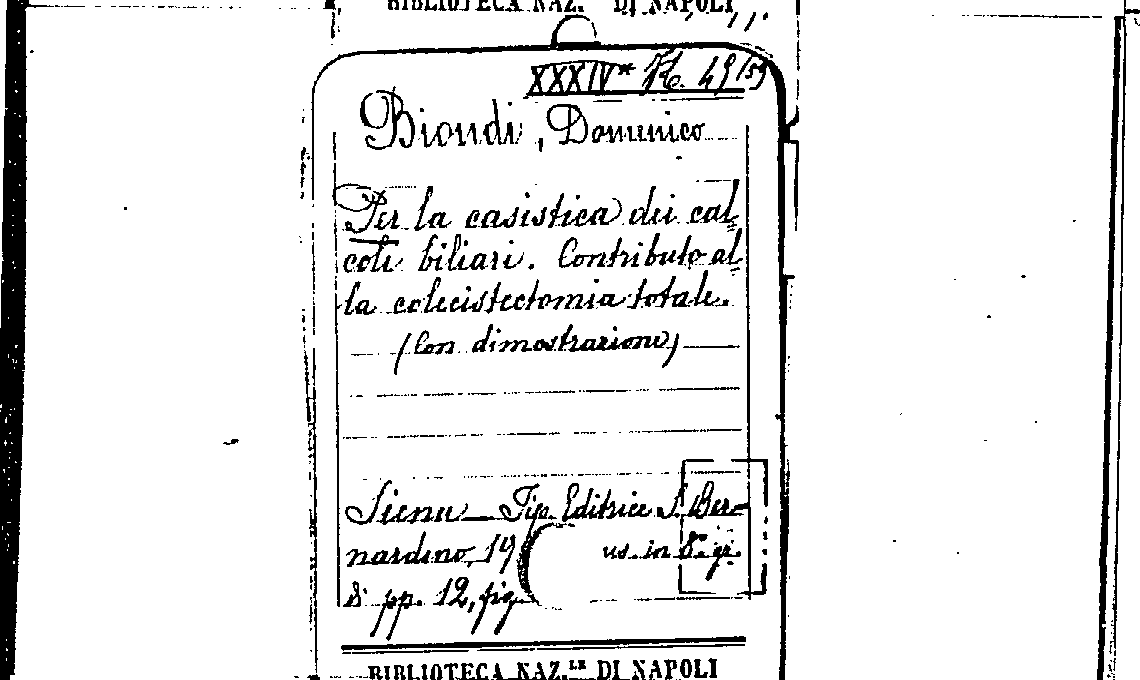 BIBLIOTECA NAZ. DI NAPOLI
XXXIV* K. 49/59
Biondi, Domenico
Per la casistica dei cal
coli biliari. Contributo al
la colecistectomia totale.
(Con dimostrazione)
Siena – Tip. Editrice S. Ber-
nardino, 19 us. in 8° gr.
8 pp. 12, fig
BIBLIOTECA NAZ.LE DI NAPOLI